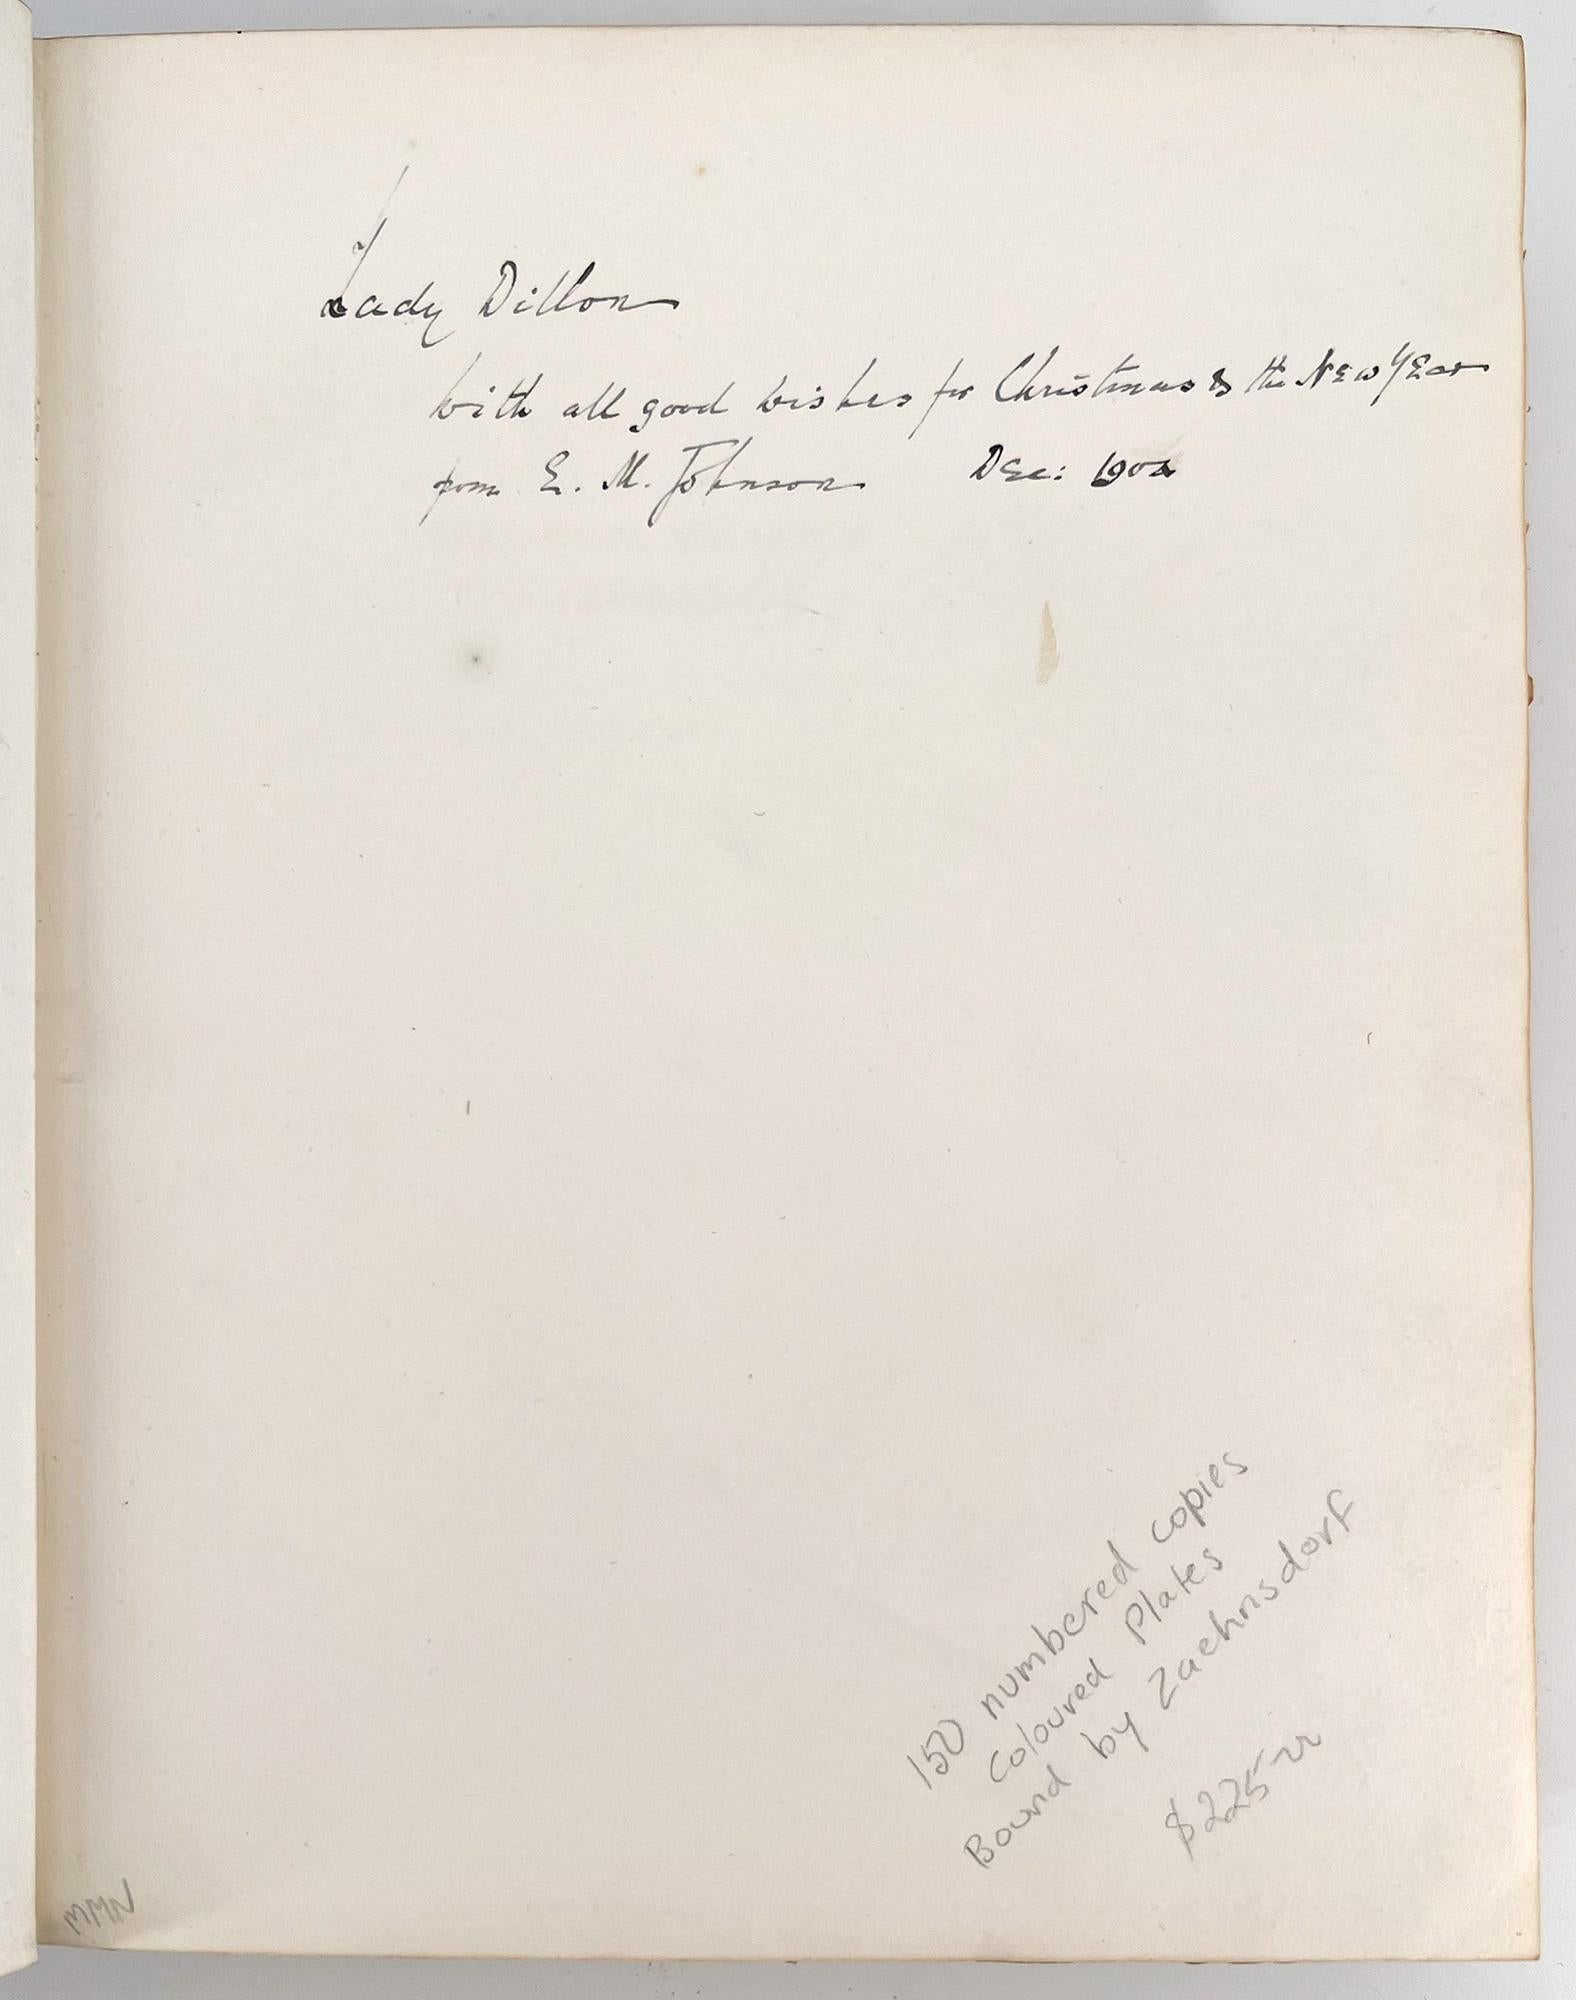 Lady Dillon
with all good wishes for Christmas & the New Year
from E. M. Johnson Dec: 1902
150 numbered copies
Coloured Plates
Bound by Zaehnsdorf
$225
MMN